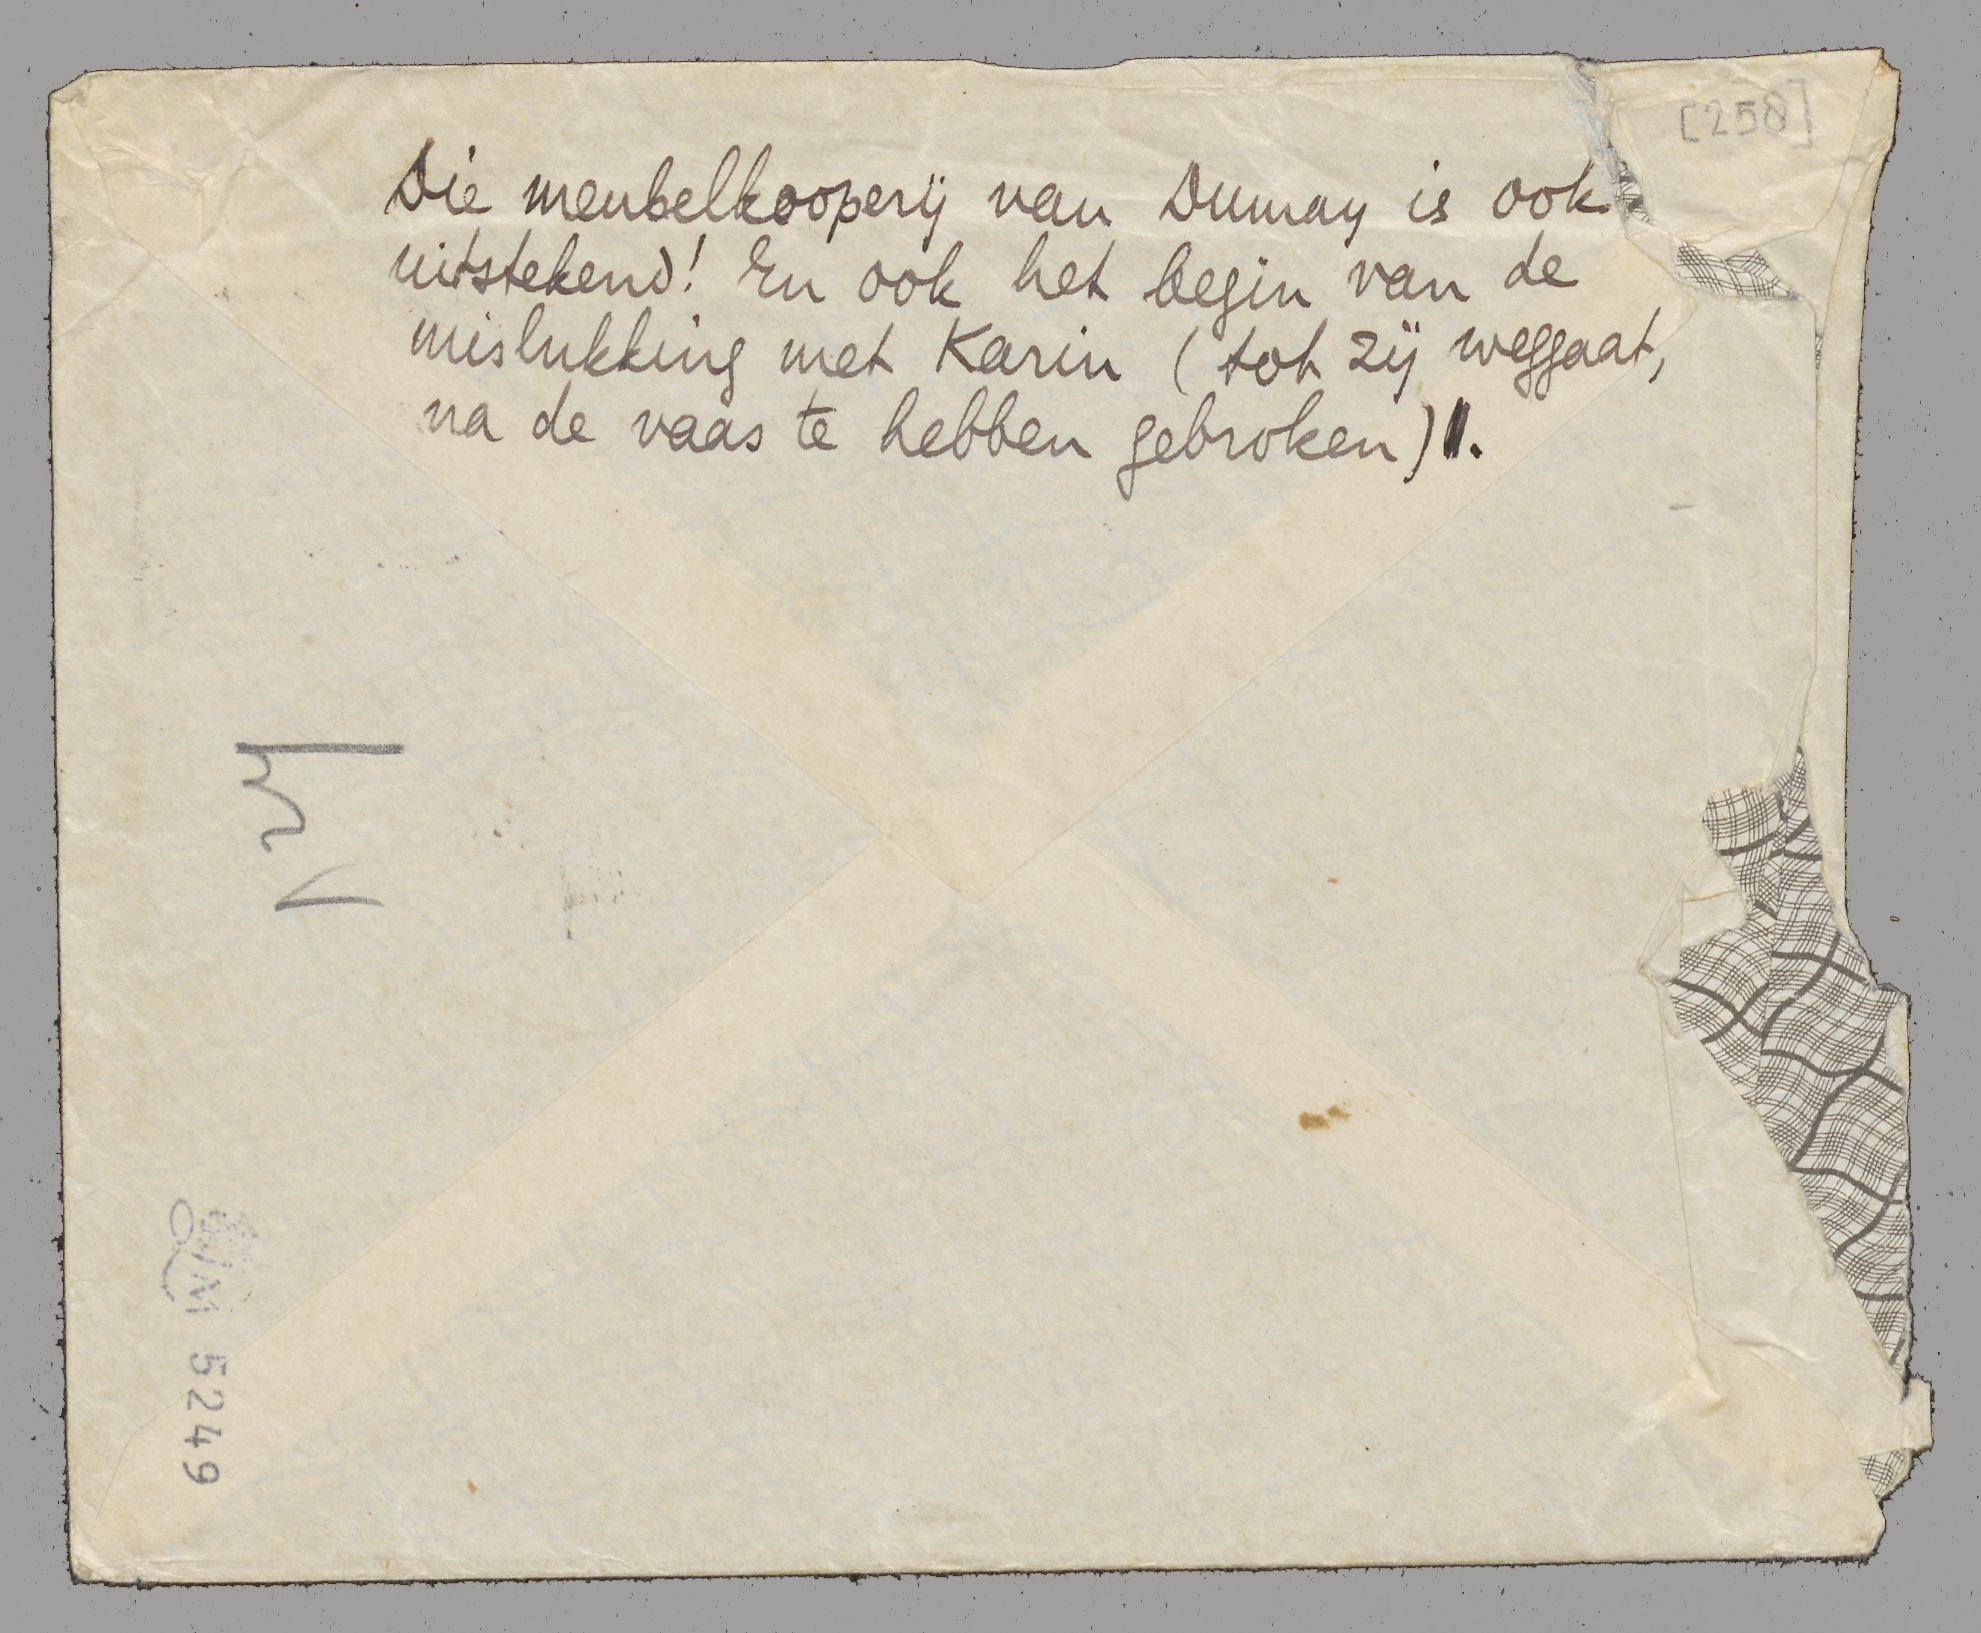 [258]
Die meubelkooperij van Dumay is ook
uitstekend! En ook het begin van de
mislukking met Karin (tot zij weggaat,
na de vaas te hebben gebroken).
5249